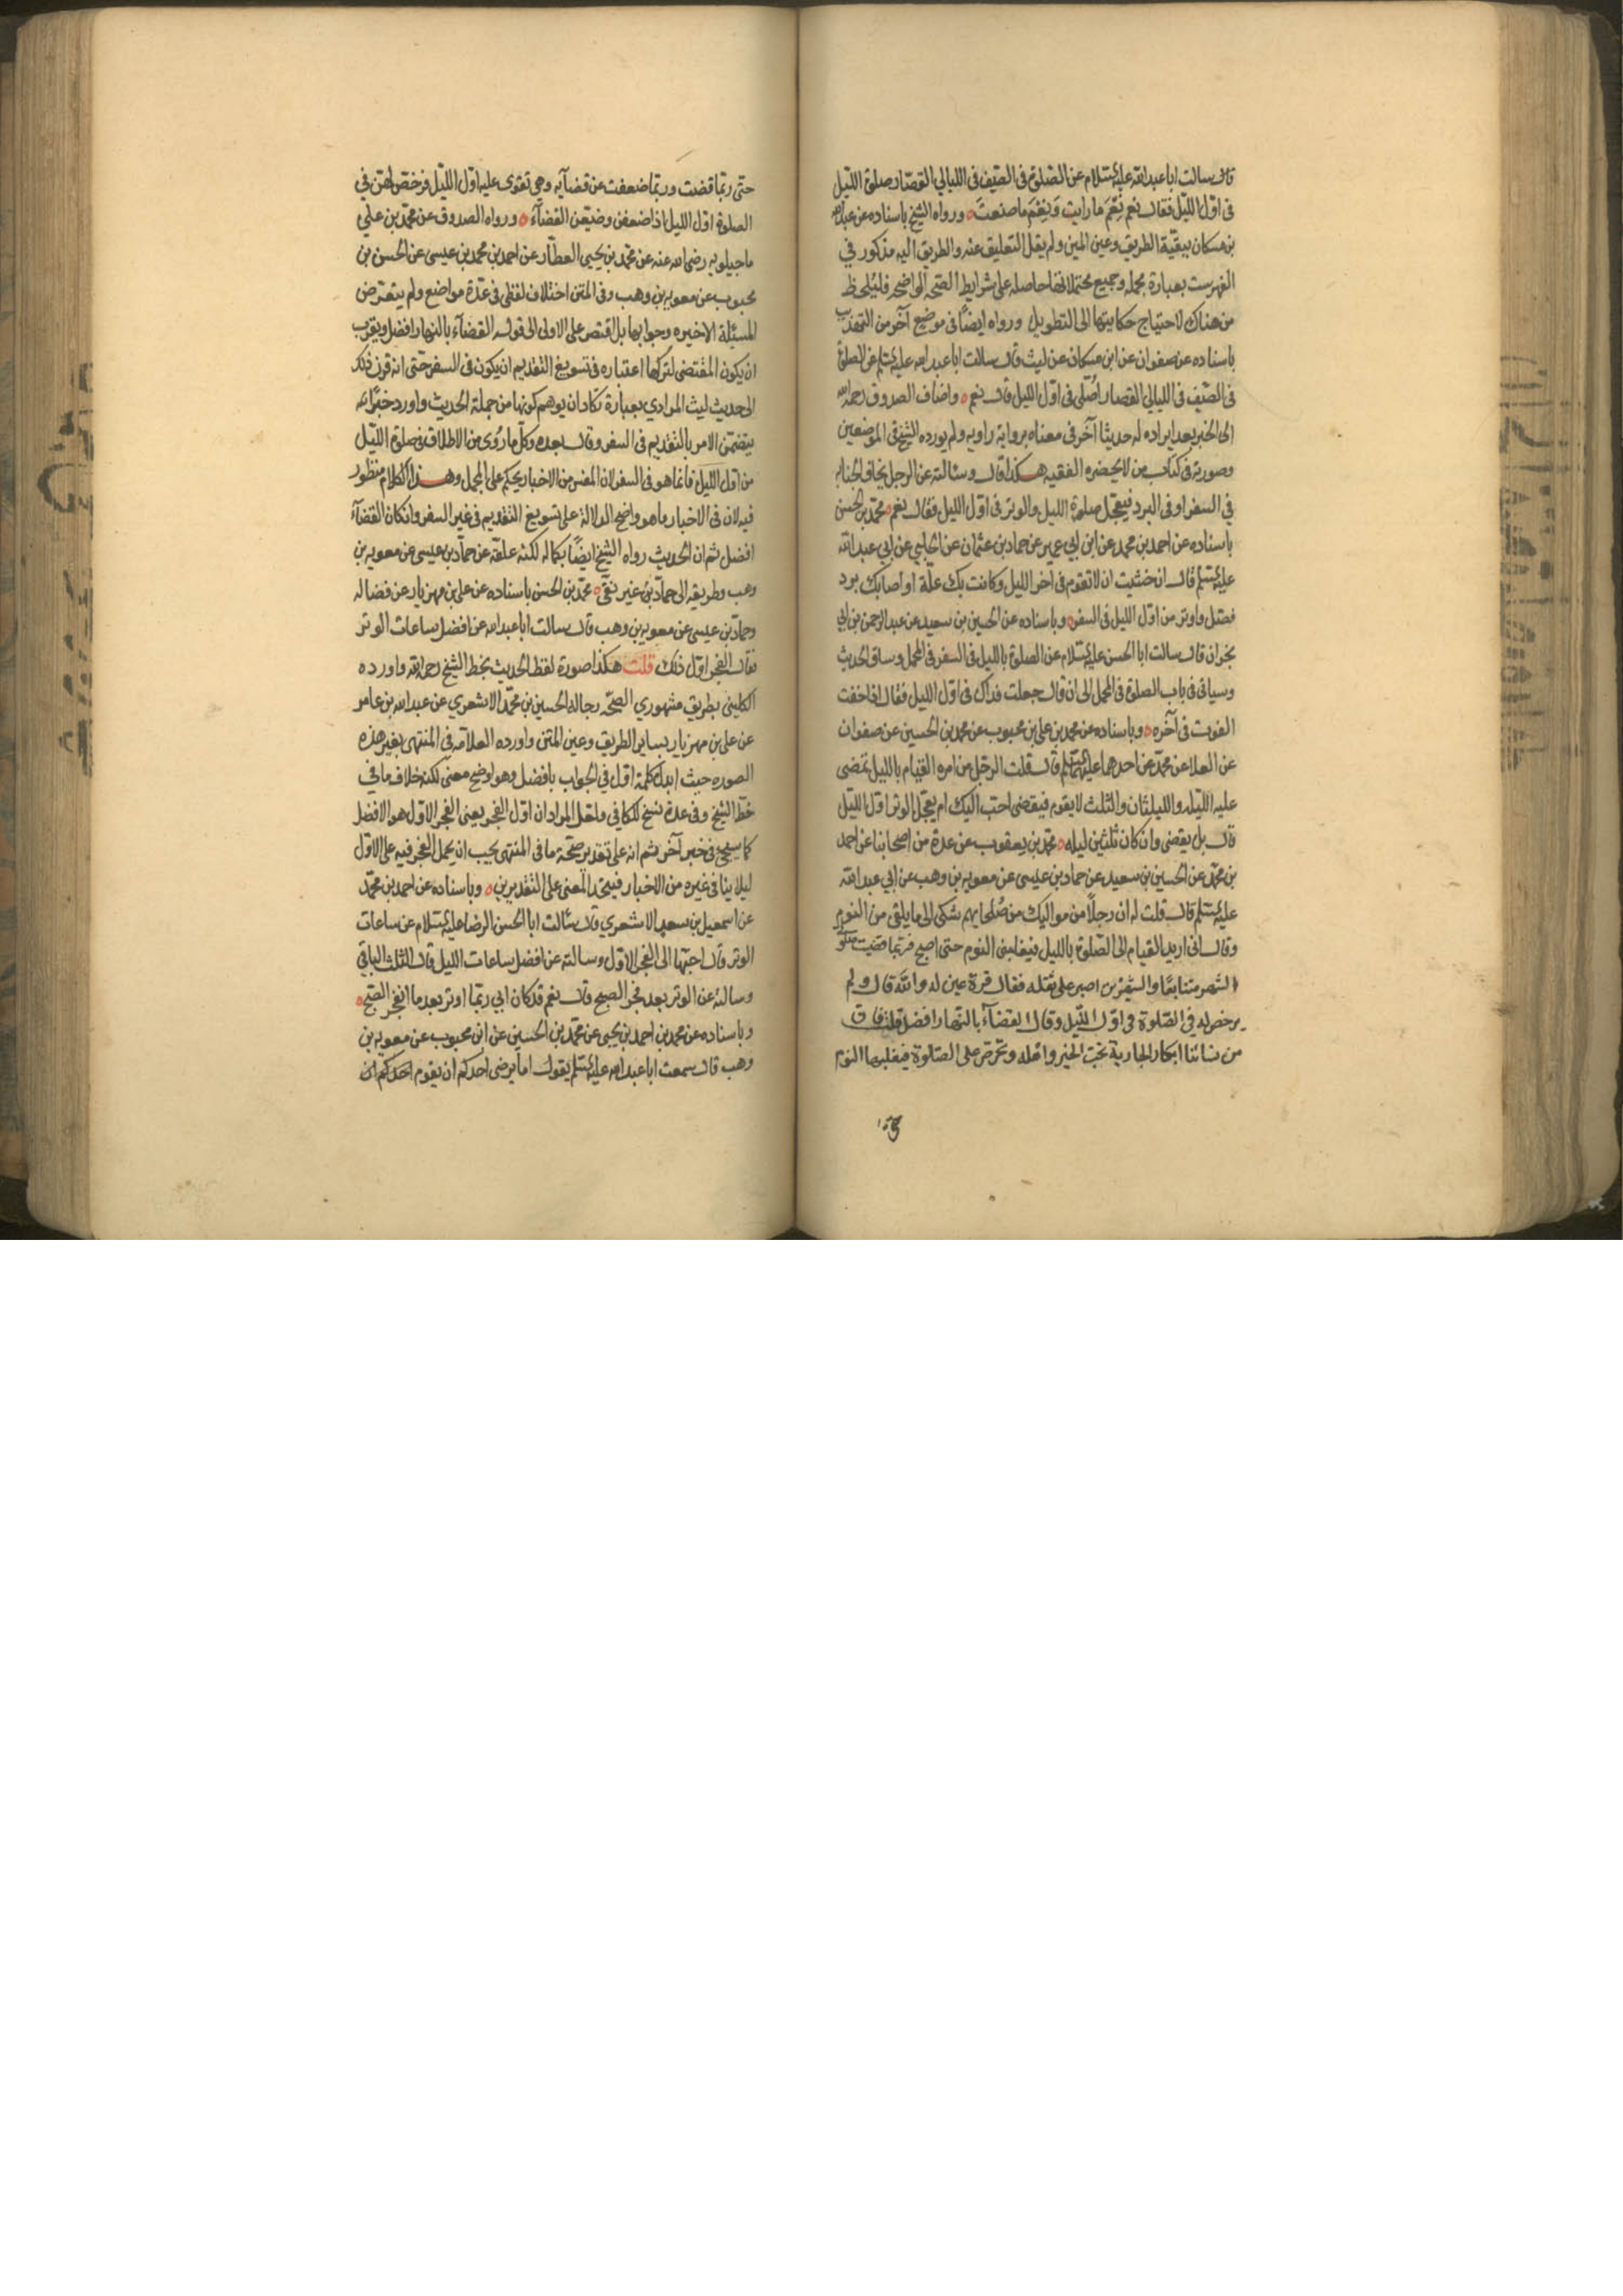 قال سالت ابا عبد الله عليه السلام عن الصلوة فى الصيف فى الليالي القصار صلوة الليل
فى اول الليل فقال نعم نِعْمَ ما رايت وَنِعْمَ ما صنعتَ ورواه الشيخ باسناده عن عبد الله
بن مسكان ببقية الطريق وعين المتن ولم يقل التعليق عنه والطريق اليه مذكور في
الفهرست بعبارة مجمله وجميع محتملاتها حاصله على شرايط الصحه الواضحه فليُلحظ
من هناك لاحتياج حكايتها الى التطويل ورواه ايضًا فى موضع آخر من التهذيب
باسناده عن صفوان عن ابن مسكان عن ليث قال سالت ابا عبد الله عليه السلم عن الصلوة
فى الصيف فى الليالي القصار اُصلى فى اول الليل قال نعم واضاف الصدوق رحمه الله
الى الخبر بعد ايراده له حديثًا آخر فى معناه برواية راويه ولم يورده الشيخ فى الموضعين
وصورته فى كتاب من لا يحضره الفقيه هكذا قال وسئالته عن الرجل يخاف الجنابه
في السفر او فى البرد فيعجل صلوة الليل والوتر فى اول الليل فقال نعم محمد بن الحسن
باسناده عن احمد بن محمد عن ابن ابي عمير عن حماد بن عثمان عن الحلبي عن ابي عبد الله
عليه السلم قال ان خشيت ان لا تقوم فى اخر الليل وكانت بك علّة او اصابك برد
فصل واوتر من اول الليل فى السفر وباسناده عن الحسين بن سعيد عن عبد الرحمن بن ابي
نجران قال سالت ابا الحسن عليه السلام عن الصلوة بالليل فى السفر فى المحمل وساق الحديث
وسياتى فى باب الصلوة فى المحمل الى ان قال جعلت فداك فى اول الليل فقال اذا خفت
الفوت فى آخره وباسناده عن محمد بن على بن محبوب عن محمد بن الحسين عن صفوان
عن العلا عن محمد عن احدهما عليهما السلم قال قلت الرجل من امره القيام بالليل تمضى
عليه الليله والليلتان والثلث لا يقوم فيقضى احب اليك ام يعجل الوتر اول الليل
قال بل يقضى وان كان ثلثين ليله محمد بن يعقوب عن عدة من اصحابنا عن احمد
بن محمد عن الحسين بن سعيد عن حماد بن عيسى عن معويه بن وهب عن ابي عبد الله
عليه السلم قال قلت له ان رجلاً من مواليك من صُلحايهم شكى الى ما يلقى من النوم
وقال انى اريد القيام الى الصلوة بالليل فيغلبنى النوم حتى اصبح فربما قضيت صلوتي
الشهر متتابعًا والشهرين اصبر على ثقله فقال قرة عين له والله قال ولم
يرخص له في الصلوة فى اول الليل وقال القضآء بالنهار افضل قلت فان
من نسائنا ابكار الجارية تحب الخير واهله وتحرص على الصلوة فيغلبها النوم
حتى
حتى ربما قضت وربما ضعفت عن قضآيه وهى تقوى عليه اول الليل فرخص لهن في
الصلوة اول الليل اذا ضعفن وضيّعن القضآء ورواه الصدوق عن محمد بن علي
ماجيلويه رضى الله عنه عن محمد بن يحيى العطّار عن احمد بن محمد بن عيسى عن الحسن بن
محبوب عن معويه بن وهب وفى المتن اختلاف لفظى فى عدّة مواضع ولم يتعرّض
للمسئلة الاخيره وجوابها بل اقتصر على الاولى الى قوله القضاء بالنهار افضل ويقرب
ان يكون المقتضى لتركها اعتباره فى تسويغ التقديم ان يكون فى السفر حتى انه قرن ذلك
الى حديث ليث المرادي بعبارة تكاد ان يوهم كونها من جملة الحديث واورد خبرًا له
يتضمن الامر بالتقديم فى السفر وقال بعده وكل ما رُوى من الاطلاق فى صلوة الليل
من اول الليل فانما هو فى السفر لان المفسر من الاخبار يحكم على المجمل وهذا الكلام منظور
فيه لان فى الاخبار ما هو واضح الدلالة على تسويغ التقديم فى غير السفر وان كان القضآء
افضل ثم ان الحديث رواه الشيخ ايضًا بكماله لكنه علقه عن حماد بن عيسى عن معويه بن
وهب وطريقه الى حماد بن غير نقي محمد بن الحسن باسناده عن على بن مهزيار عن فضاله
وحماد بن عيسى عن معويه بن وهب قال سالت ابا عبد الله عن افضل ساعات الوتر
فقال الفجر اول ذلك قلت هكذا صورة لفظ الحديث بخط الشيخ رحمه الله واورده
الكلينى بطريق مشهوري الصحّه رجاله الحسين بن محمد الاشعري عن عبد الله بن عامر
عن على بن مهزيار بساير الطريق وعين المتن واورده العلامه فى المنتهى بغير هذه
الصوره حيث ابدل كلمة اول في الجواب بافضل وهو اوضح معنى لكنه خلاف ما في
خط الشيخ وفى عدة نسخ للكافي ولعل المراد ان اول الفجر يعنى الفجر الاول هو الافضل
كما سيجئ فى خبر آخر ثم انه على تقدير صحّة ما فى المنتهى يجب ان يحمل الفجر فيه على الاول
ليلا ينافى غيره من الاخبار فيتحد المعنى على التقديرين وباسناده عن احمد بن محمد
عن اسمعيل بن سعد الاشعري قال سئالت ابا الحسن الرضا عليه السلام عن ساعات
الوتر قال احبّها الى الفجر الاول وسالته عن افضل ساعات الليل قال الثلث الباقي
وسالته عن الوتر بعد فجر الصبح قال نعم قد كان ابي ربّما اوتر بعد ما انفجر الصبح
وباسناده عن محمد بن احمد بن يحيى عن محمد بن الحسين عن ابن محبوب عن معويه بن
وهب قال سمعت ابا عبد الله عليه السلم يقول اما يرضى احدكم ان يقوم احدكم ان